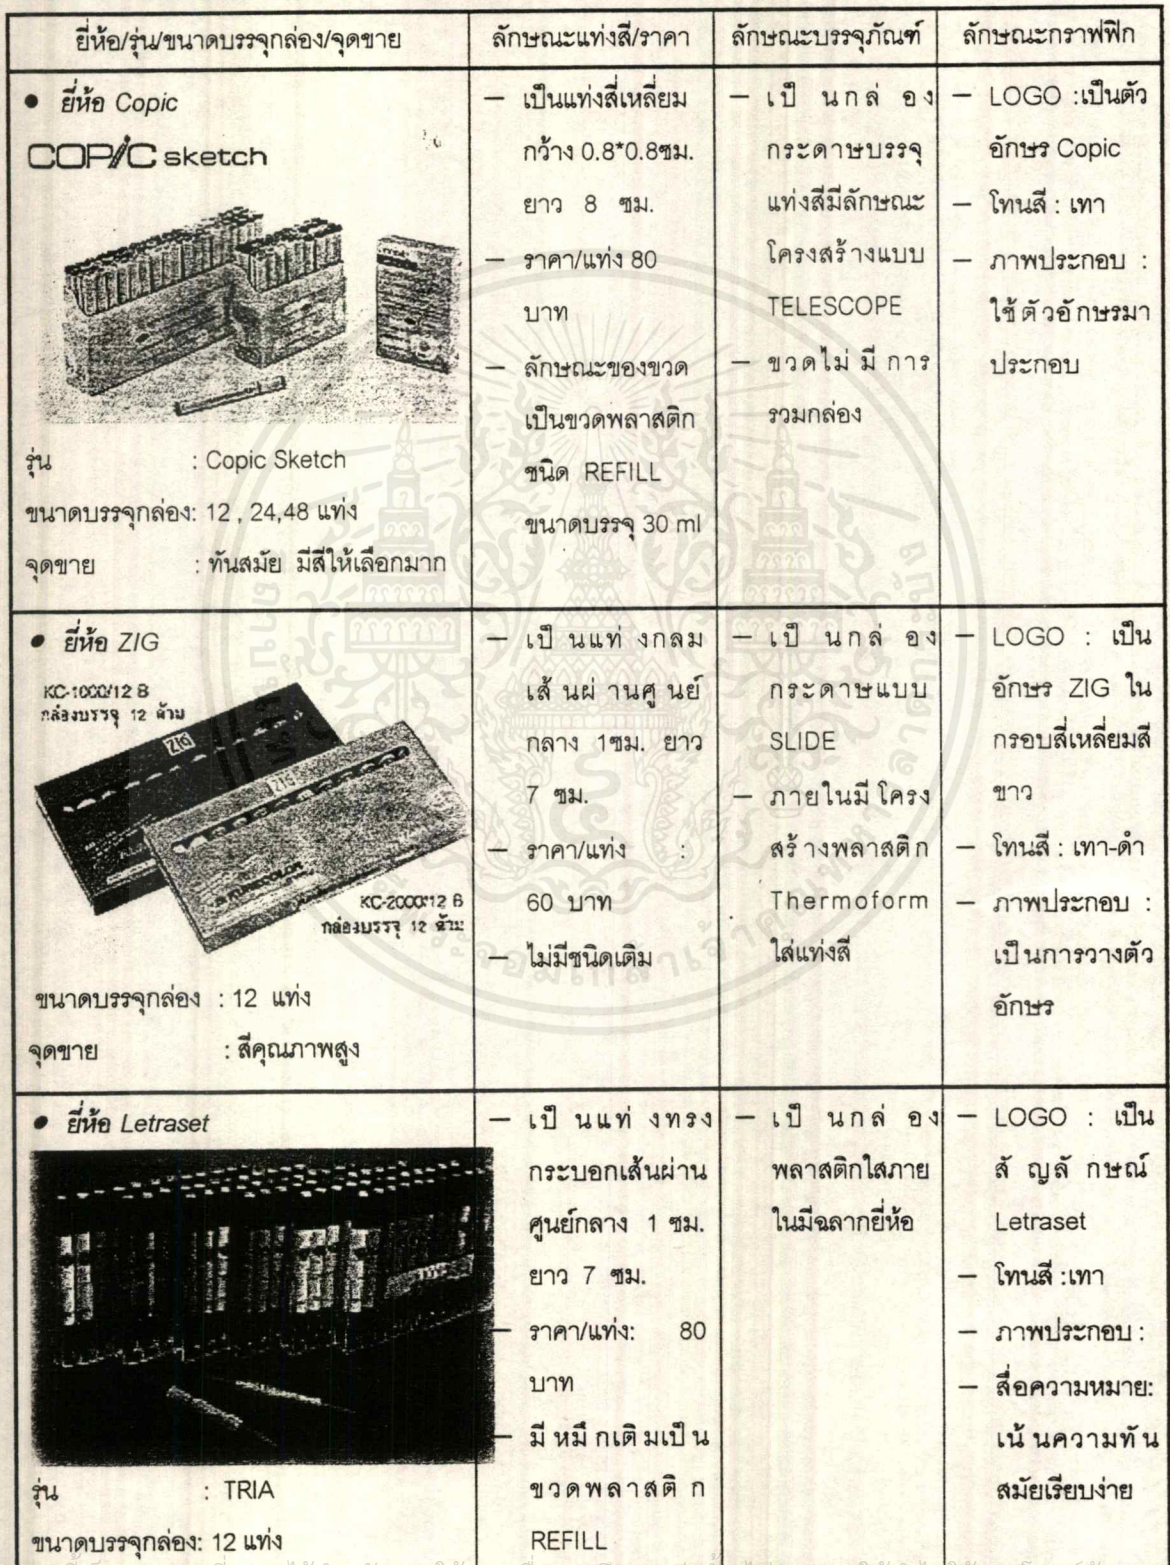 ยี่ห้อ/รุ่น/ขนาดบรรจุกล่อง/จุดขาย
ลักษณะแท่งสี/ราคา
ลักษณะบรรจุภัณฑ์
ลักษณะกราฟฟิก
• ยี่ห้อ Copic
COPIC sketch
รุ่น : Copic Sketch
ขนาดบรรจุกล่อง: 12 , 24,48 แท่ง
จุดขาย : ทันสมัย มีสีให้เลือกมาก
– เป็นแท่งสี่เหลี่ยม
กว้าง 0.8*0.8ซม.
ยาว 8 ซม.
– ราคา/แท่ง 80
บาท
– ลักษณะของขวด
เป็นขวดพลาสติก
ชนิด REFILL
ขนาดบรรจุ 30 ml
– เป็นกล่อง
กระดาษบรรจุ
แท่งสีมีลักษณะ
โครงสร้างแบบ
TELESCOPE
– ขวดไม่มีการ
รวมกล่อง
– LOGO :เป็นตัว
อักษร Copic
– โทนสี : เทา
– ภาพประกอบ :
ใช้ตัวอักษรมา
ประกอบ
• ยี่ห้อ ZIG
KC-1000/12 B
กล่องบรรจุ 12 ด้าม
ZIG
ZIG
KC-2000/12 B
กล่องบรรจุ 12 ด้าม
ขนาดบรรจุกล่อง : 12 แท่ง
จุดขาย : สีคุณภาพสูง
– เป็นแท่งกลม
เส้นผ่านศูนย์
กลาง 1ซม. ยาว
7 ซม.
– ราคา/แท่ง :
60 บาท
– ไม่มีชนิดเติม
– เป็นกล่อง
กระดาษแบบ
SLIDE
– ภายในมีโครง
สร้างพลาสติก
Thermoform
ใส่แท่งสี
– LOGO : เป็น
อักษร ZIG ใน
กรอบสี่เหลี่ยมสี
ขาว
– โทนสี : เทา-ดำ
– ภาพประกอบ :
เป็นการวางตัว
อักษร
• ยี่ห้อ Letraset
รุ่น : TRIA
ขนาดบรรจุกล่อง: 12 แท่ง
– เป็นแท่งทรง
กระบอกเส้นผ่าน
ศูนย์กลาง 1 ซม.
ยาว 7 ซม.
– ราคา/แท่ง: 80
บาท
– มีหมึกเติมเป็น
ขวดพลาสติก
REFILL
– เป็นกล่อง
พลาสติกใสภาย
ในมีฉลากยี่ห้อ
– LOGO : เป็น
สัญลักษณ์
Letraset
– โทนสี :เทา
– ภาพประกอบ :
– สื่อความหมาย:
เน้นความทัน
สมัยเรียบง่าย